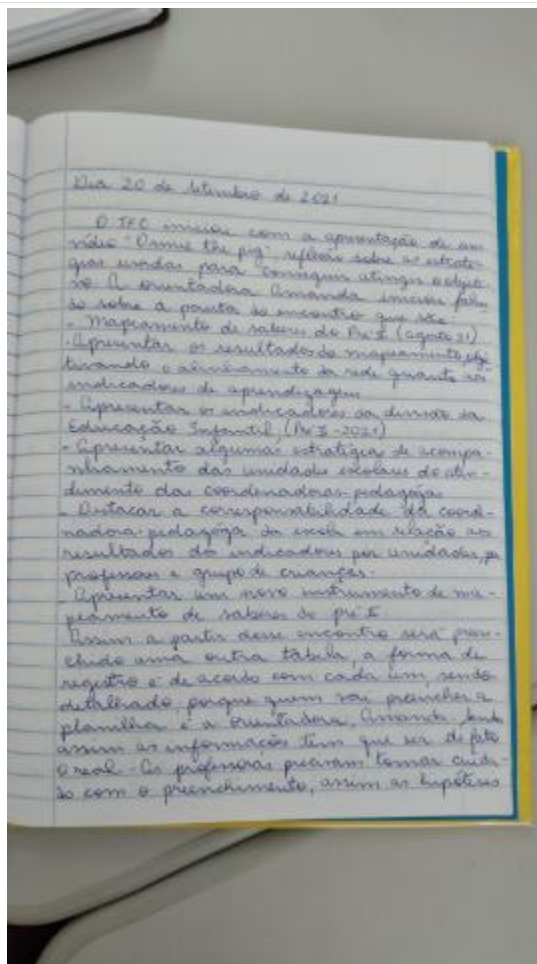 Dia 20 de Setembro de 2021
O TFC iniciou com a apresentação de um
vídeo "Ormie the pig", reflexão sobre as estraté-
gias usadas para conseguir atingir o objeti-
vo. A orientadora Amanda iniciou falan-
do sobre a pauta do encontro que são
- Mapeamento de saberes do Pré II (agosto 21)
- Apresentar os resultados do mapeamento, obje
tivando o alinhamento da rede quanto aos
indicadores de aprendizagem
- Apresentar os indicadores da divisão da
Educação Infantil, (Pré II - 2021)
- Apresentar algumas estratégia de acompa-
nhamento das unidades escolares do aten-
dimento das coordenadoras-pedagógas
- Destacar a corresponsabilidade da coorde-
nadora-pedagóga da escola em relação aos
resultados dos indicadores por unidades, por
professores e grupo de crianças.
- Apresentar um novo instrumento de ma-
peamento de saberes do pré II.
Assim a partir desse encontro será preen-
chido uma outra tabela, a forma de
registro é de acordo com cada um, sendo
detalhado, porque quem vai preencher a
planilha é a orientadora Amanda, sendo
assim as informações tem que ser de fato
o real. As professoras precisam tomar cuida-
do com o preenchimento, assim as hipóteses